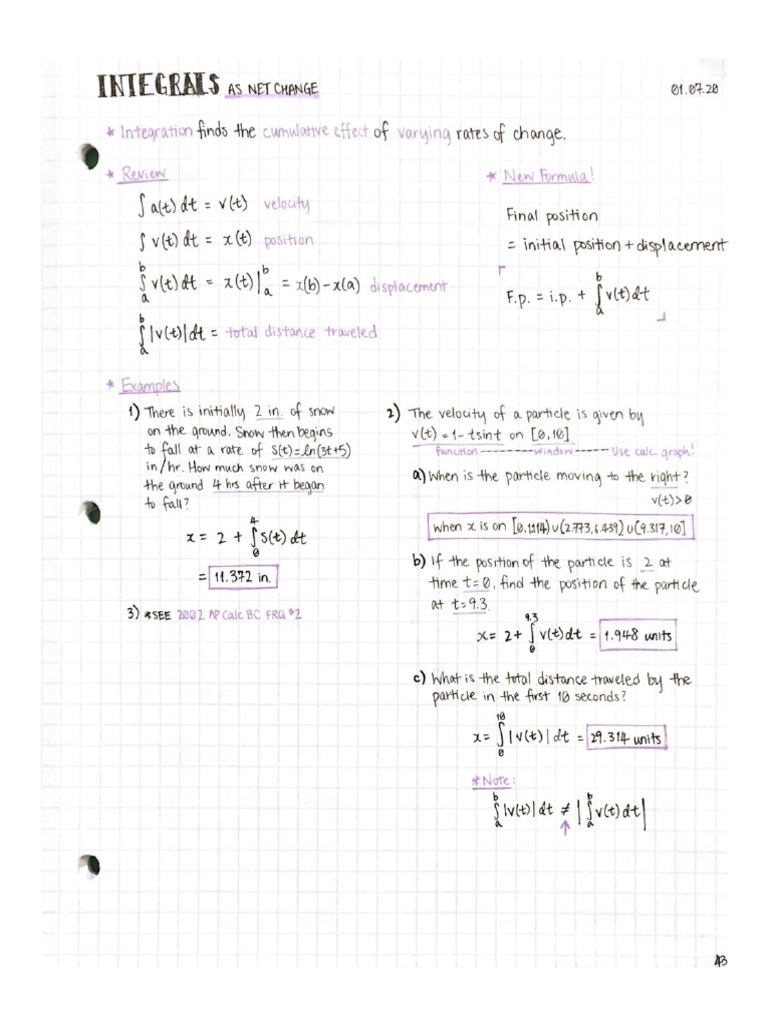 INTEGRALS AS NET CHANGE
01.07.20
* Integration finds the cumulative effect of varying rates of change.
* Review
∫ a(t) dt = v(t) velocity
∫ v(t) dt = x(t) position
∫ₐᵇ v(t) dt = x(t)|ₐᵇ = x(b) - x(a) displacement
∫ₐᵇ |v(t)| dt = total distance traveled
* New Formula!
Final position
= initial position + displacement
F.p. = i.p. + ∫ₐᵇ v(t) dt
* Examples
1) There is initially 2 in. of snow
on the ground. Snow then begins
to fall at a rate of S(t)=ln(3t+5)
in/hr. How much snow was on
the ground 4 hrs after it began
to fall?
x = 2 + ∫₀⁴ S(t) dt
= 11.372 in.
3) *SEE 2002 AP Calc BC FRQ #2
2) The velocity of a particle is given by
v(t) = 1 - tsint on [0,10]
function ------- window ------ Use calc. graph!
a) When is the particle moving to the right?
v(t)>0
when x is on [0,1.114)∪(2.773,6.439)∪(9.317,10]
b) If the position of the particle is 2 at
time t=0, find the position of the particle
at t=9.3.
x = 2 + ∫₀⁹·³ v(t) dt = 1.948 units
c) What is the total distance traveled by the
particle in the first 10 seconds?
x = ∫₀¹⁰ |v(t)| dt = 29.314 units
*Note:
∫ₐᵇ |v(t)| dt ≠ |∫ₐᵇ v(t) dt|
↑
43